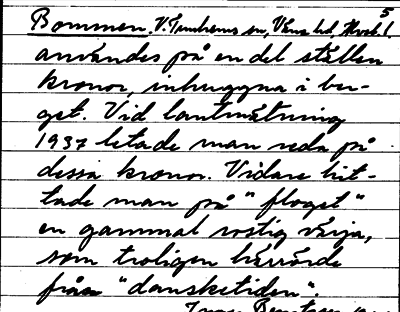 5
Bommen, V. Tunhems sn, Väne hd, Älvsb. l.
användes på en del ställen
kronor, inhuggna i ber-
get. Vid lantmätning
1937 letade man reda på
dessa kronor. Vidare hit-
tade man på "floget"
en gammal rostig värja,
som troligen härrörde
från "dansketiden".